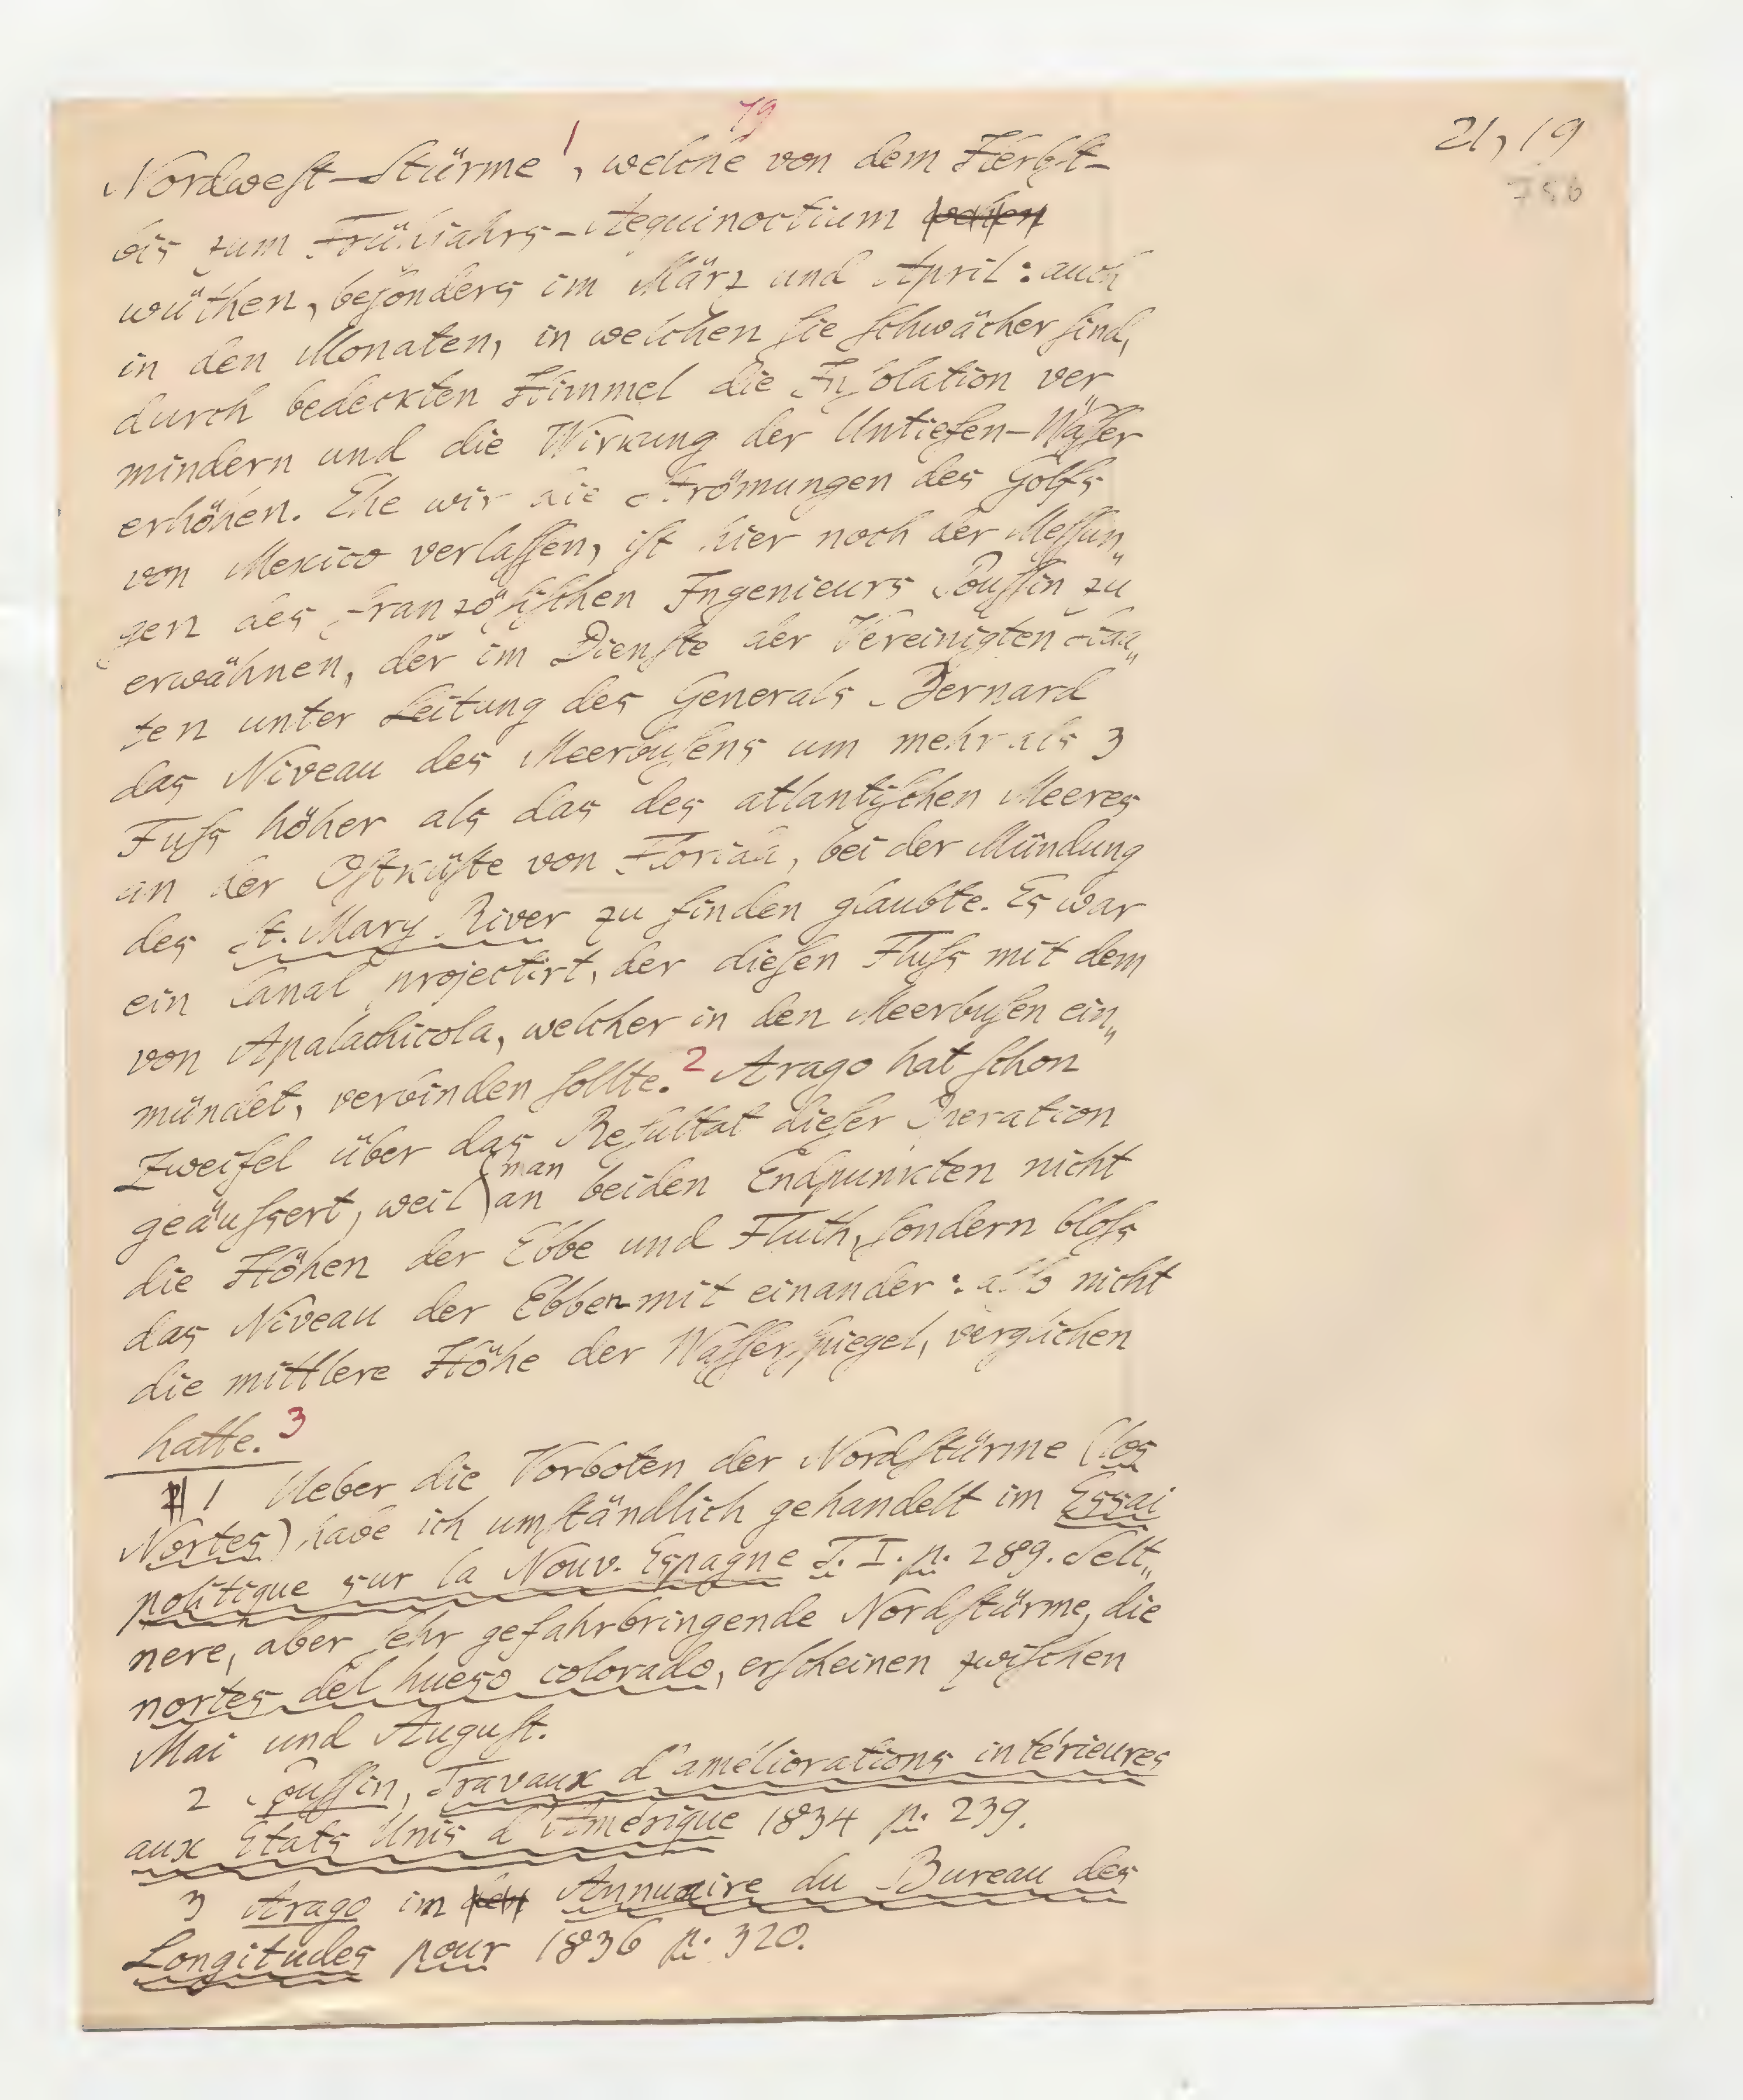 19
21, 19
786
Nordwest-Stürme 1, welche von dem Herbst-
bis zum Frühjahrs-Aequinoctium wehen
wüthen, besonders im März und April: auch
in den Monaten, in welchen sie schwächer sind,
durch bedeckten Himmel die Insolation ver
mindern und die Wirkung der Untiefen-Wässer
erhöhen. Ehe wir die Strömungen des Golfs
von Mexico verlassen, ist hier noch der Messun„
gen des französischen Ingenieurs Poussin zu
erwähnen, der im Dienste der Vereinigten Staa„
ten unter Leitung des Generals Bernard
das Niveau des Meerbusens um mehr als 3
Fuss höher als das des atlantischen Meeres
an der Ostküste von Florida, bei der Mündung
des St. Mary River zu finden glaubte. Es war
ein Canal projectirt, der diesen Fluss mit dem
von Apalachicola, welcher in den Meerbusen ein„
mündet, verbinden sollte.2 Arago hat schon
Zweifel über das Resultat dieser Operation
geäussert, weil man an beiden Endpunkten nicht
die Höhen der Ebbe und Fluth, sondern bloss
das Niveau der Ebben mit einander: also nicht
die mittlere Höhe der Wasserspiegel, verglichen
hatte.3
1 Ueber die Vorboten der Nordstürme (los
Nortes) habe ich umständlich gehandelt im Essai
politique sur la Nouv. Espagne T. I. p. 289. Selt„
nere, aber sehr gefahrbringende Nordstürme, die
nortes del hueso colorado, erscheinen zwischen
Mai und August.
2 Poussin, Travaux d'améliorations intérieures
aux Etats Unis d'Amérique 1834 p. 239.
3 Arago im den Annuaire du Bureau des
Longitudes pour 1836 p. 320.